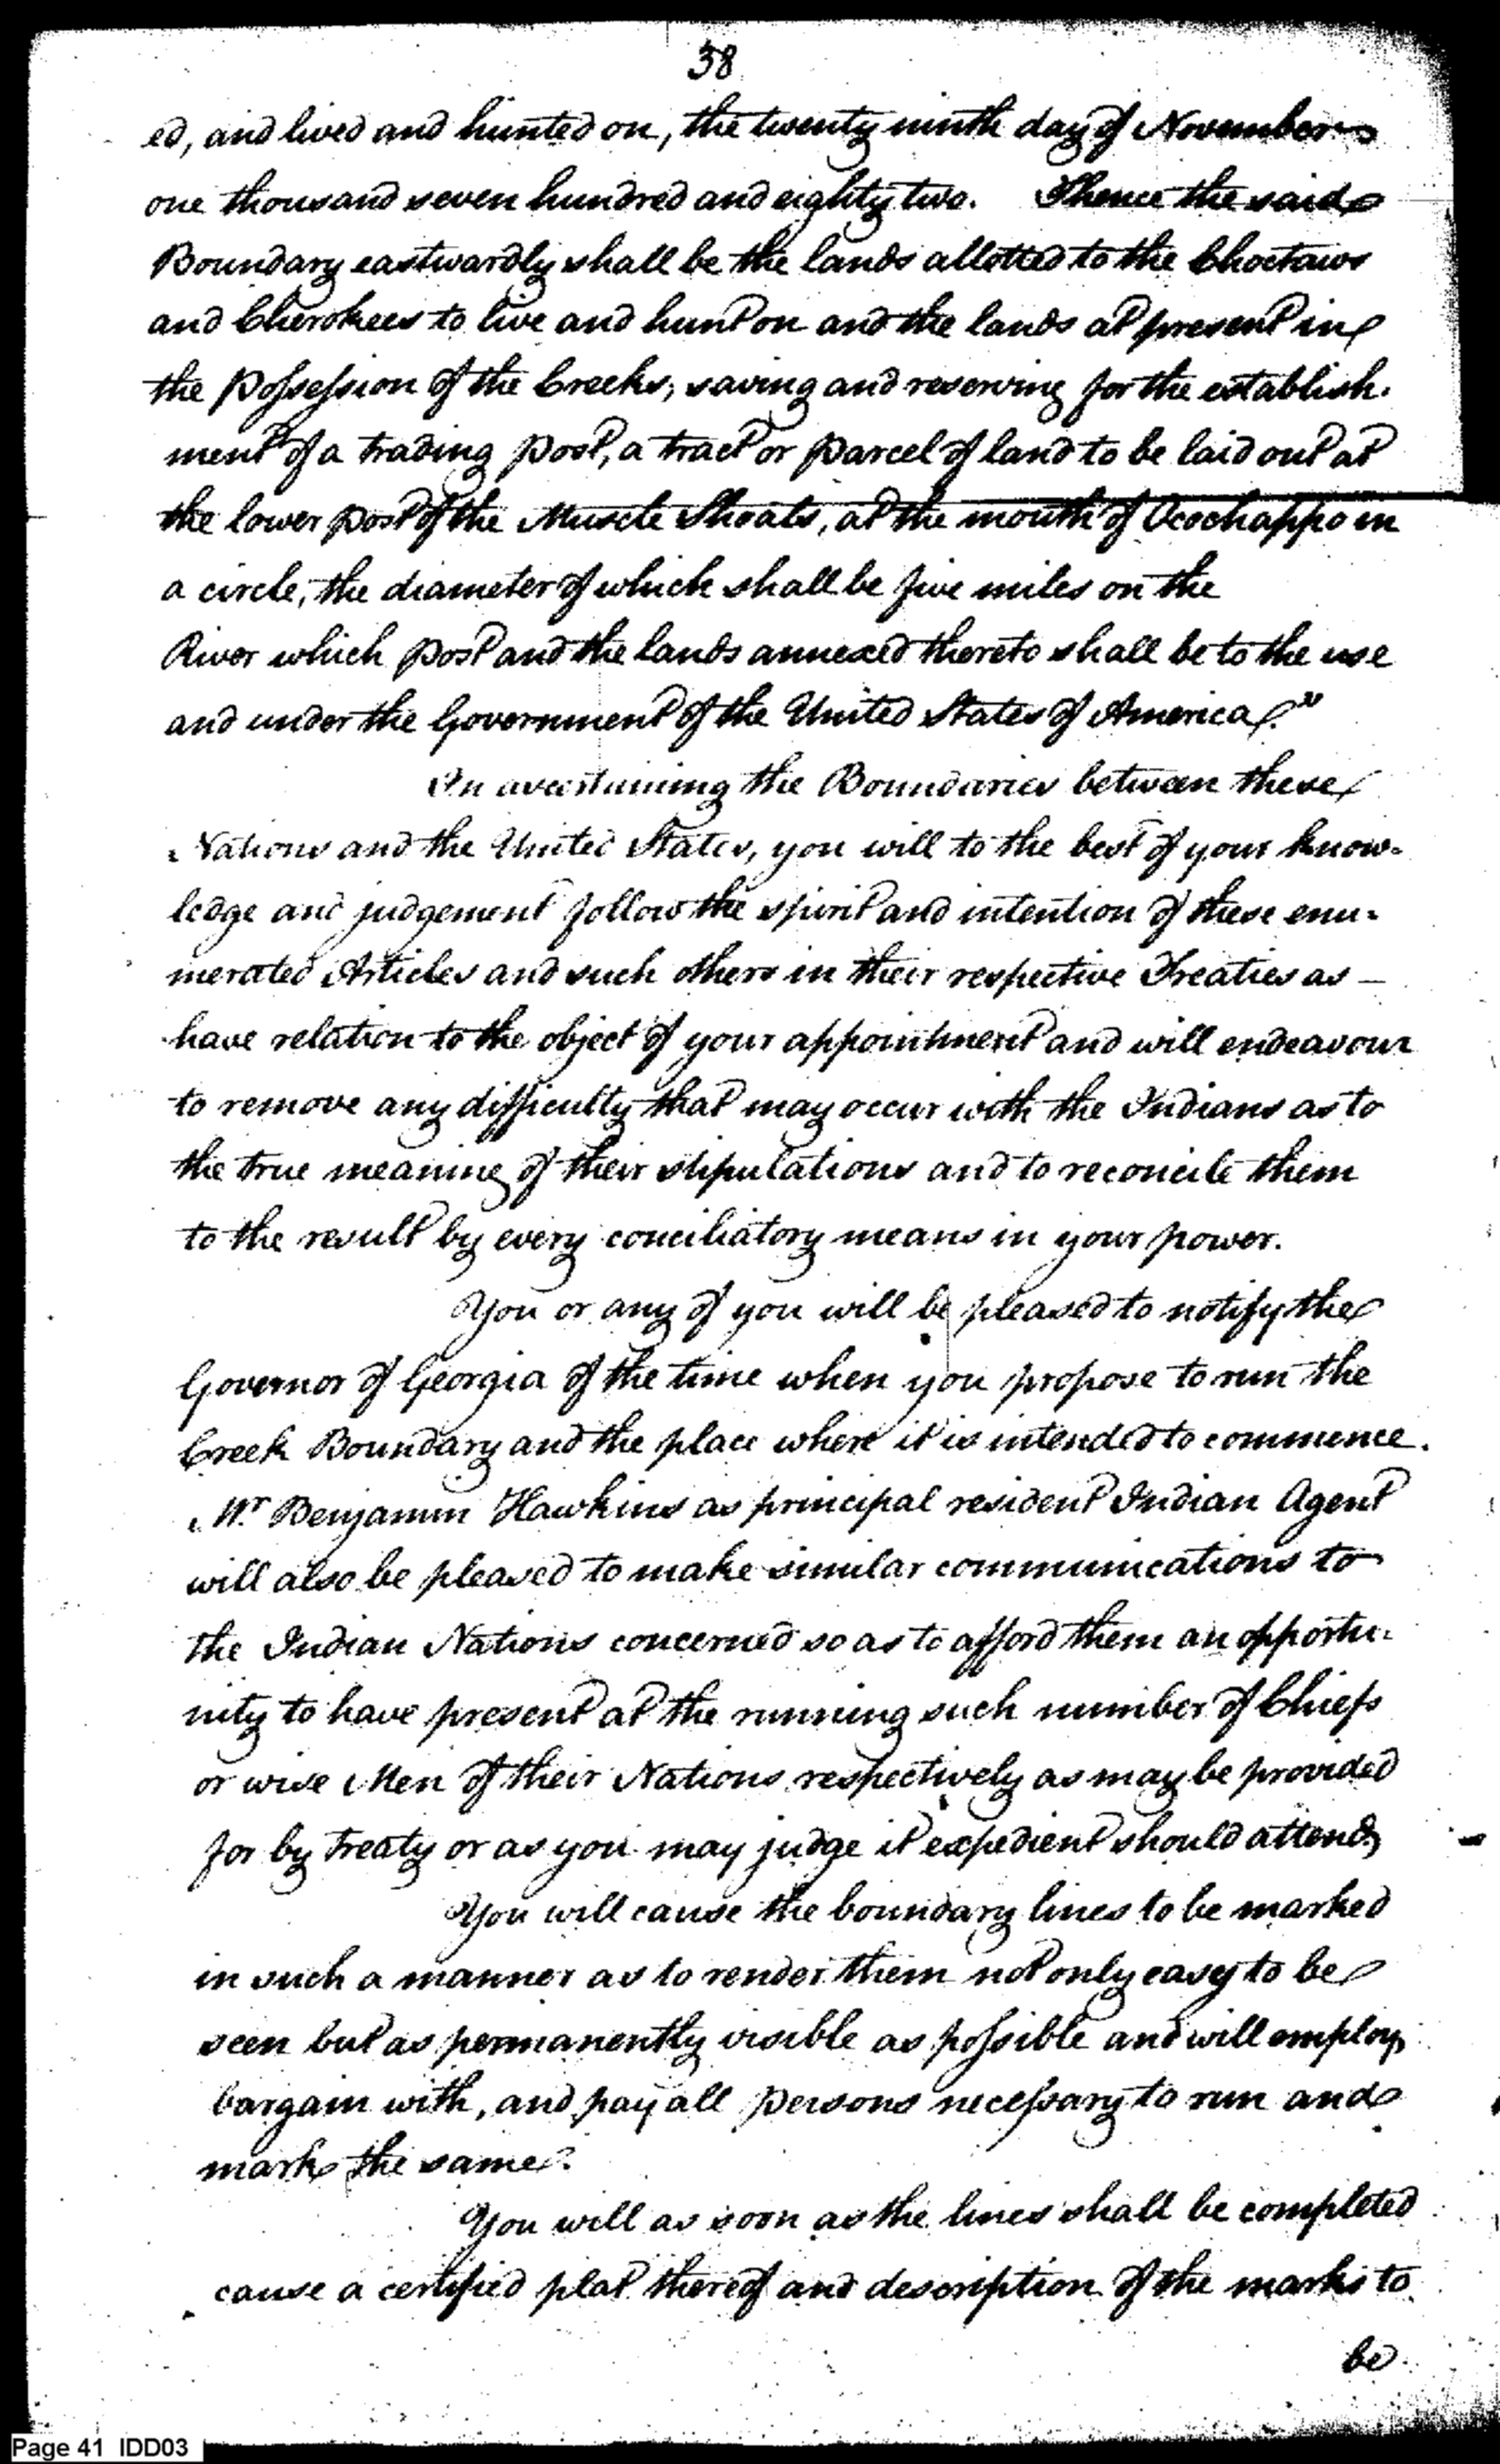 38
ed, and lived and hunted on, the twenty ninth day of November
one thousand seven hundred and eighty two. Thence the said
Boundary eastwardly shall be the lands allotted to the Choctaws
and Cherokees to live and hunt on and the lands at present in
the Possession of the Creeks; saving and reserving for the establish-
ment of a trading post, a tract or parcel of land to be laid out at
the lower post of the Muscle Shoals, at the mouth of Ocochappo in
a circle, the diameter of which shall be five miles on the
River which post and the lands annexed thereto shall be to the use
and under the Government of the United States of America."
In ascertaining the Boundaries between these
Nations and the United States, you will to the best of your know-
ledge and judgement follow the spirit and intention of these enu-
merated Articles and such others in their respective Treaties as —
have relation to the object of your appointment and will endeavour
to remove any difficulty that may occur with the Indians as to
the true meaning of their stipulations and to reconcile them
to the result by every conciliatory means in your power.
You or any of you will be pleased to notify the
Governor of Georgia of the time when you propose to run the
Creek Boundary and the place where it is intended to commence.
Mr Benjamin Hawkins as principal resident Indian Agent
will also be pleased to make similar communications to
the Indian Nations concerned so as to afford them an opportu-
nity to have present at the running such number of Chiefs
or wise Men of their Nations respectively as may be provided
for by treaty or as you may judge it expedient should attend.
You will cause the boundary lines to be marked
in such a manner as to render them not only easy to be
seen but as permanently visible as possible and will employ
bargain with, and pay all persons necessary to run and
mark the same.
You will as soon as the lines shall be completed
cause a certified plat thereof and description of the marks to
be
Page 41 IDD03